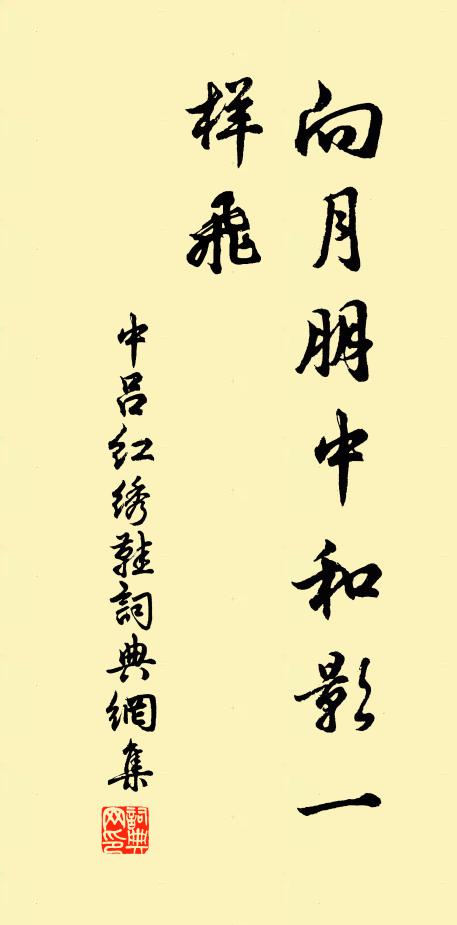 向月朋中和影一
样飛
中吕红绣鞋詞典網集
詞典
网印